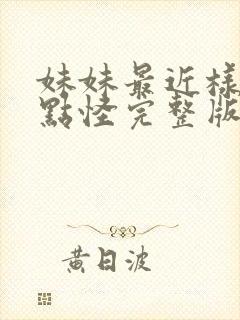 妹妹最近樣
點怪完整版
黃日波